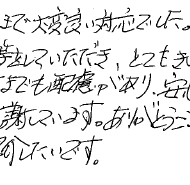 まで大変良い対応でした。
していただき、とてもき
までも配慮があり、安
謝しています。ありがとうご
介したいです。